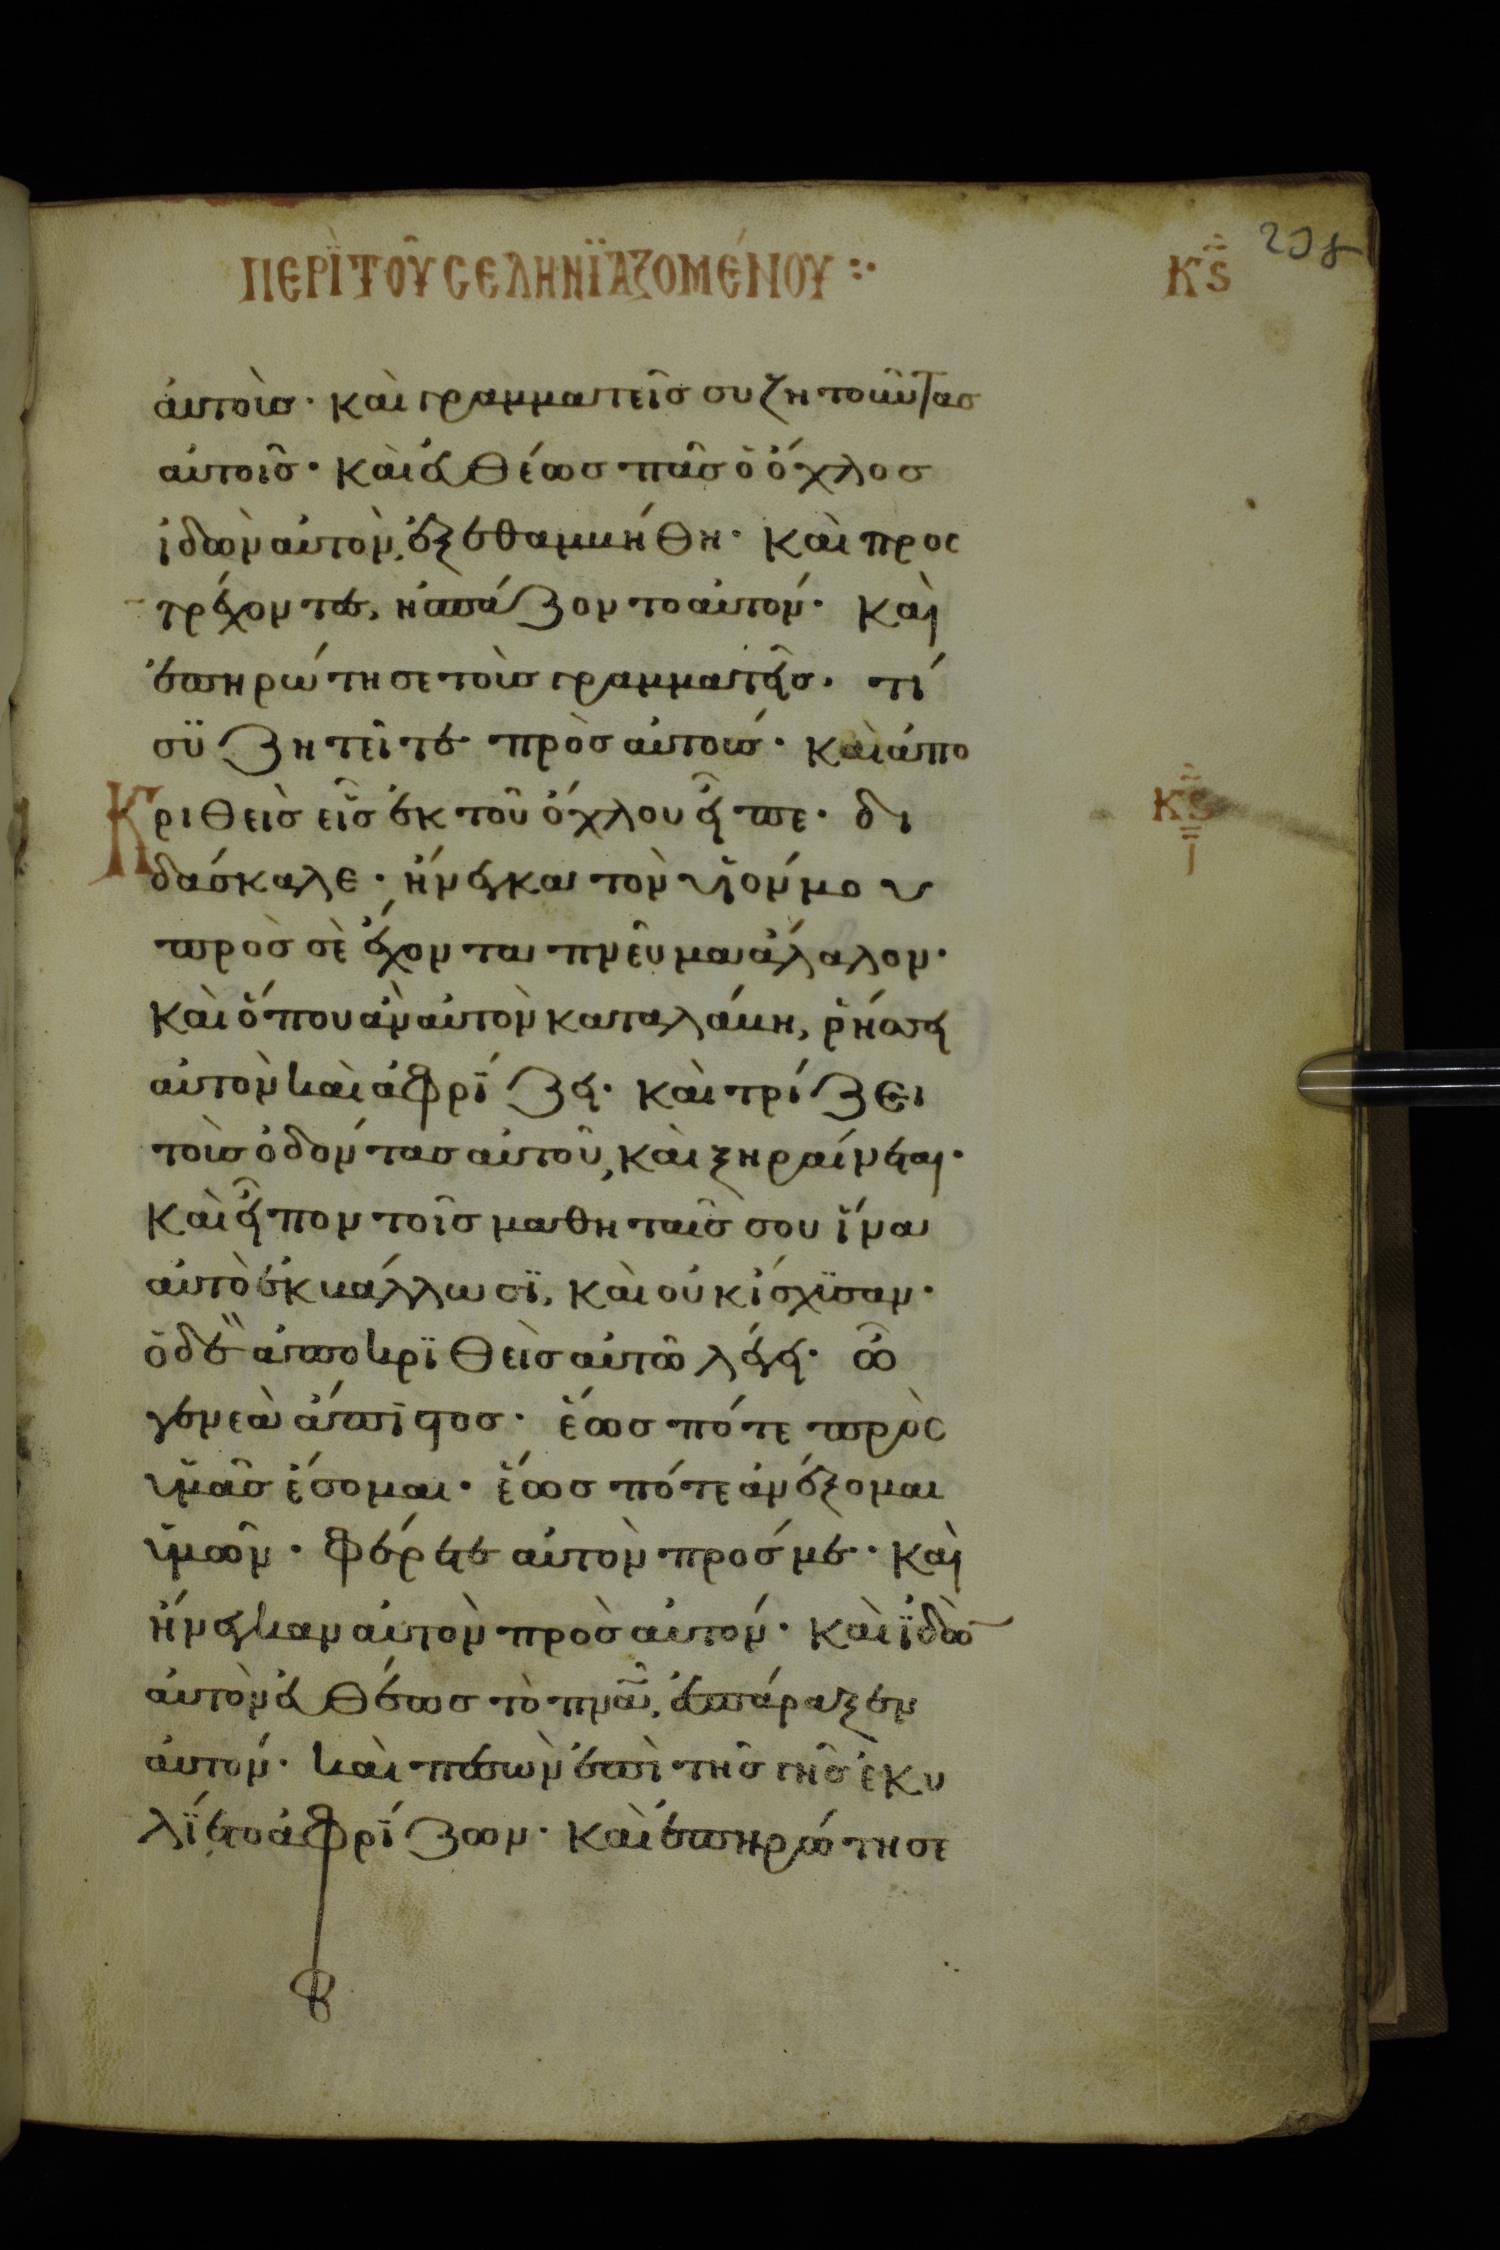 ΠΕΡῚ ΤΟῦ ϹΕΛΗΝΪΑΖΟΜΈΝΟΥ :· Κϛ
αὐτοὺσ· καὶ γραμματεῖσ συζητοῦντασ
αὐτοῖσ· καὶ εὐθέωσ πᾶσ ὁ ὄχλοσ
ἰδὼν αὐτὸν, ἐξεθαμβήθη· καὶ προσ
τρέχοντες, ἠσπάζοντο αὐτόν· καὶ
ἐπηρώτησε τοὺσ γραμματεῖσ· τί
συζητεῖτε πρὸσ αὐτούσ· καὶ ἀπο
Κριθεὶσ εἷσ ἐκ τοῦ ὄχλου εἶπε· δι
δάσκαλε· ἤνεγκα τὸν υἱόν μου
πρὸσ σὲ ἔχοντα πνεῦμα ἄλαλον·
καὶ ὅπου ἂν αὐτὸν καταλάβη, ῥήσσει
αὐτὸν καὶ ἀφρίζει· καὶ τρίζει
τοὺσ ὀδόντασ αὐτοῦ, καὶ ξηραίνεται·
καὶ εἶπον τοῖσ μαθηταῖσ σου ἵνα
αὐτὸ ἐκβάλλωσϊ, καὶ οὐκ ἴσχϋσαν·
ὁ δὲ ἀποκρϊθεὶσ αὐτῶ λέγει· ὦ
γενεὰ ἄπιστοσ· ἕωσ πότε πρὸσ
ὑμᾶσ ἔσομαι· ἕωσ πότε ἀνέξομαι
ὑμῶν· φέρετε αὐτὸν πρόσ μὲ· καὶ
ἤνεγκαν αὐτὸν πρὸσ αὐτόν· καὶ ἰδὼν
αὐτὸν εὐθέωσ τὸ πνᾶ, ἐσπάραξεν
αὐτόν· καὶ πεσὼν ἐπὶ τῆσ γῆσ ἐκυ
λΐετο ἀφρΐζων· καὶ ἐπηρώτησε